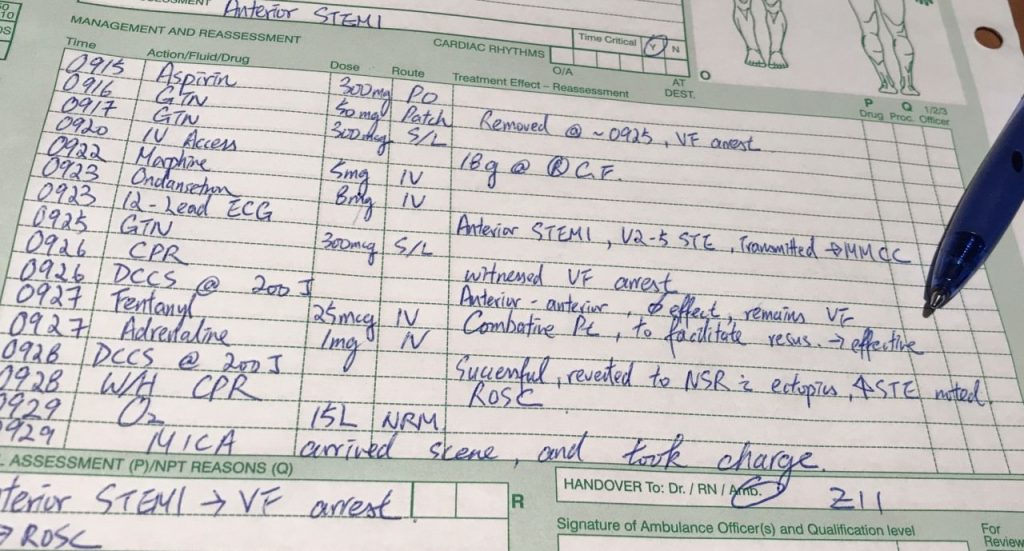 Anterior STEMI
Time Critical Y N
MANAGEMENT AND REASSESSMENT CARDIAC RHYTHMS O/A AT DEST.
Time Action/Fluid/Drug Dose Route Treatment Effect – Reassessment P Drug Q Proc. 1/2/3 Officer
0915 Aspirin 300mg PO
0916 GTN 50mg Patch Removed @ ~0925, VF arrest
0917 GTN 300mcg S/L
0920 IV Access 18g @ R C.F.
0922 Morphine 5mg IV
0923 Ondansetron 8mg IV
0923 12-Lead ECG Anterior STEMI, V2-5 STE, Transmitted → MMCC
0925 GTN 300mcg S/L
0926 CPR witnessed VF arrest
0926 DCCS @ 200J Anterior - anterior, ϕ effect, remains VF
0927 Fentanyl 25mcg IV Combative Pt, to facilitate resus. → effective
0927 Adrenaline 1mg IV
0928 DCCS @ 200J Successful, reverted to NSR c̄ ectopics, ↑STE noted
0928 W/H CPR ROSC
0929 O2 15L NRM
0929 MICA arrived scene, and took charge.
ASSESSMENT (P)/NPT REASONS (Q)
terior STEMI → VF arrest
→ ROSC
R
HANDOVER To: Dr. / RN / Amb. Z11
Signature of Ambulance Officer(s) and Qualification level
For Review